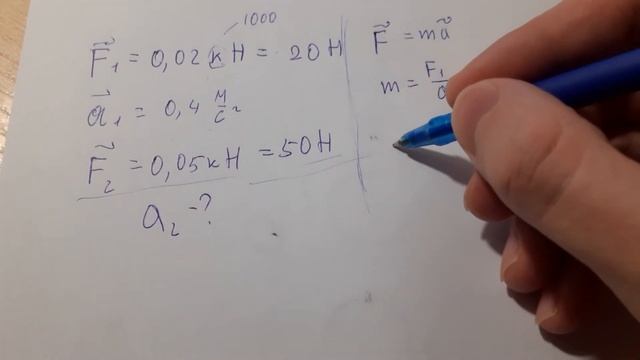 1000
F⃗₁ = 0,02 кН = 20 Н
a⃗₁ = 0,4 м/с²
F⃗₂ = 0,05 кН = 50 Н
a₂ - ?
F⃗ = ma⃗
m = F₁/a